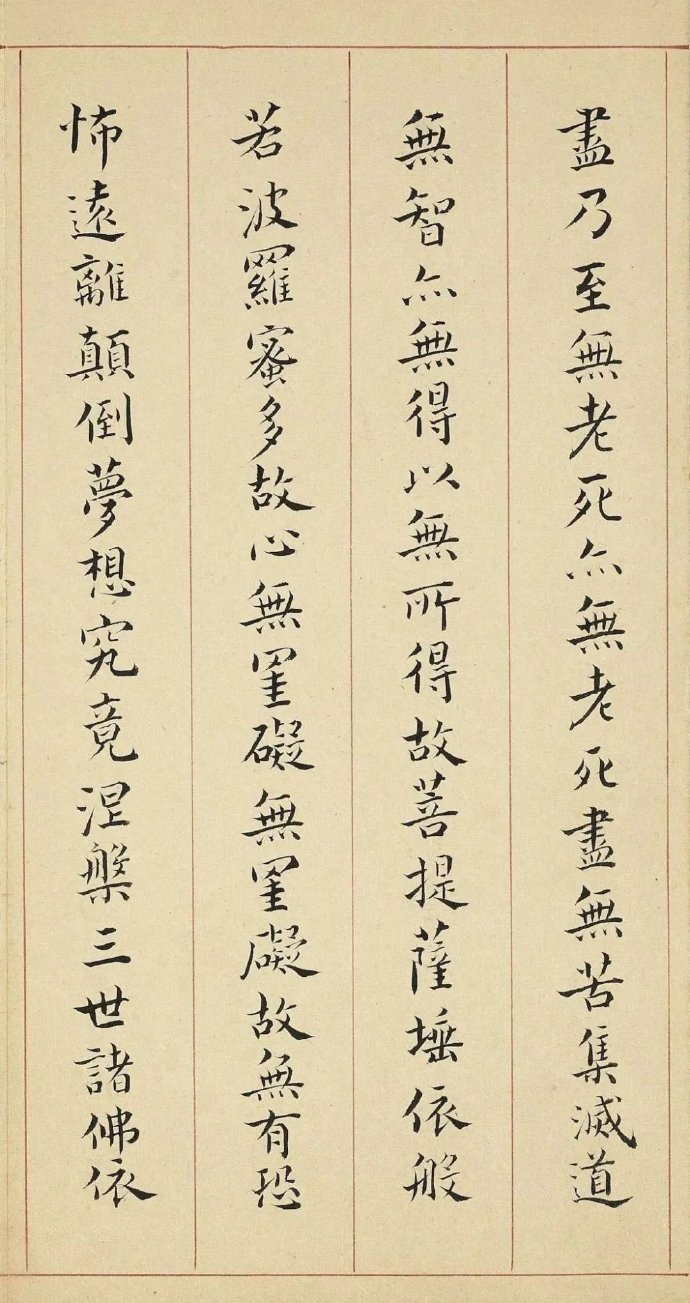 盡乃至無老死亦無老死盡無苦集滅道
無智亦無得以無所得故菩提薩埵依般
若波羅蜜多故心無罣礙無罣礙故無有恐
怖遠離顛倒夢想究竟涅槃三世諸佛依